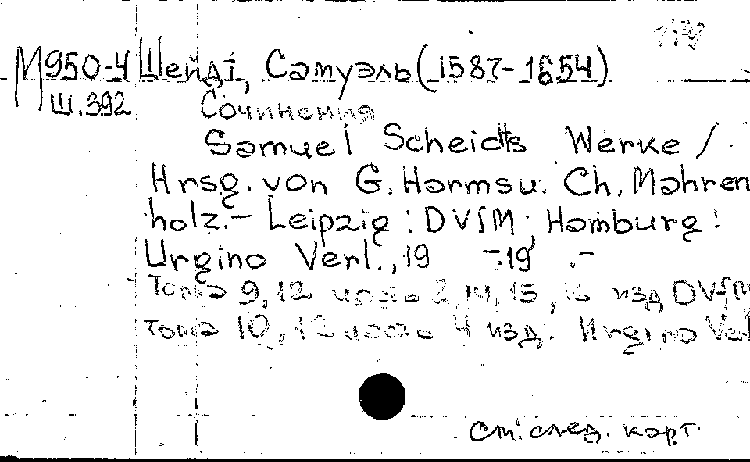 М950-4 Шейдт, Самуэль (1587-1654)
Ш.392 Сочинения
Samuel Scheidts Werke /
Hrsg. von G. Harms u. Ch. Mahren
holz. - Leipzig : DVfM ; Hamburg :
Ugrino Verl., 19 - 19 . -
Тома 9, 12 2, 14, 15, 16 изд DVfM
тома 10, 12 4 изд. Ugrino Ve
См. след. карт.